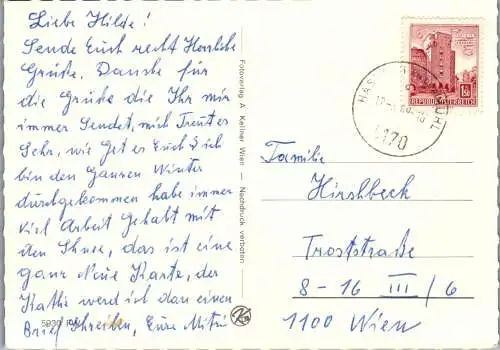 Liebe Hilde!
Sende Euch recht Herzliche
Grüße. Danke für
die Grüße die Ihr mir
immer Sendet, mich Freut es
Sehr, wie get es Euch & ich
bin den Ganzen Winter
durchgekommen habe immer
viel Arbeit Gehabt mit
den Schnee, das ist eine
ganz Neue Karte, der
Kathi werd ich dan einen
Brief Schreiben, Eure Mitzi
5930
Fotoverlag A. Kellner Wien — Nachdruck verboten
REPUBLIK ÖSTERREICH
4170
Familie
Hirshbeck
Troststraße
8-16 III/6
1100 Wien